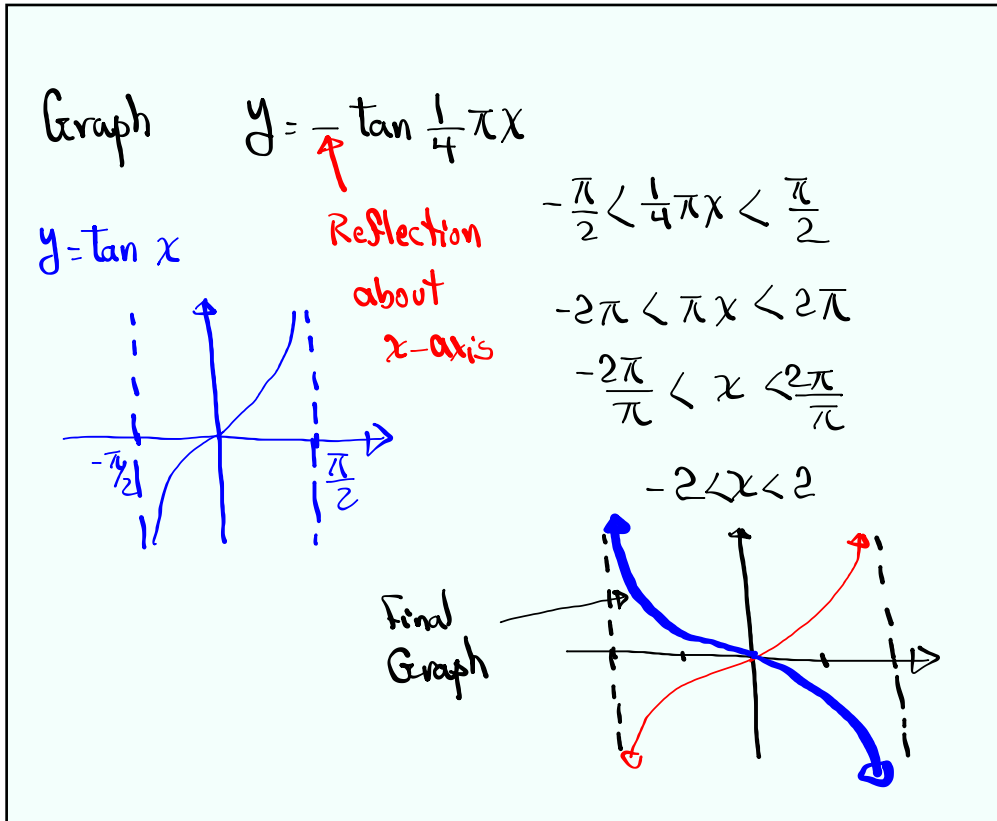 Graph y = - tan 1/4 πx
Reflection
about
x-axis
y = tan x
-π/2
π/2
-π/2 < 1/4 πx < π/2
-2π < πx < 2π
-2π/π < x < 2π/π
-2 < x < 2
Final
Graph